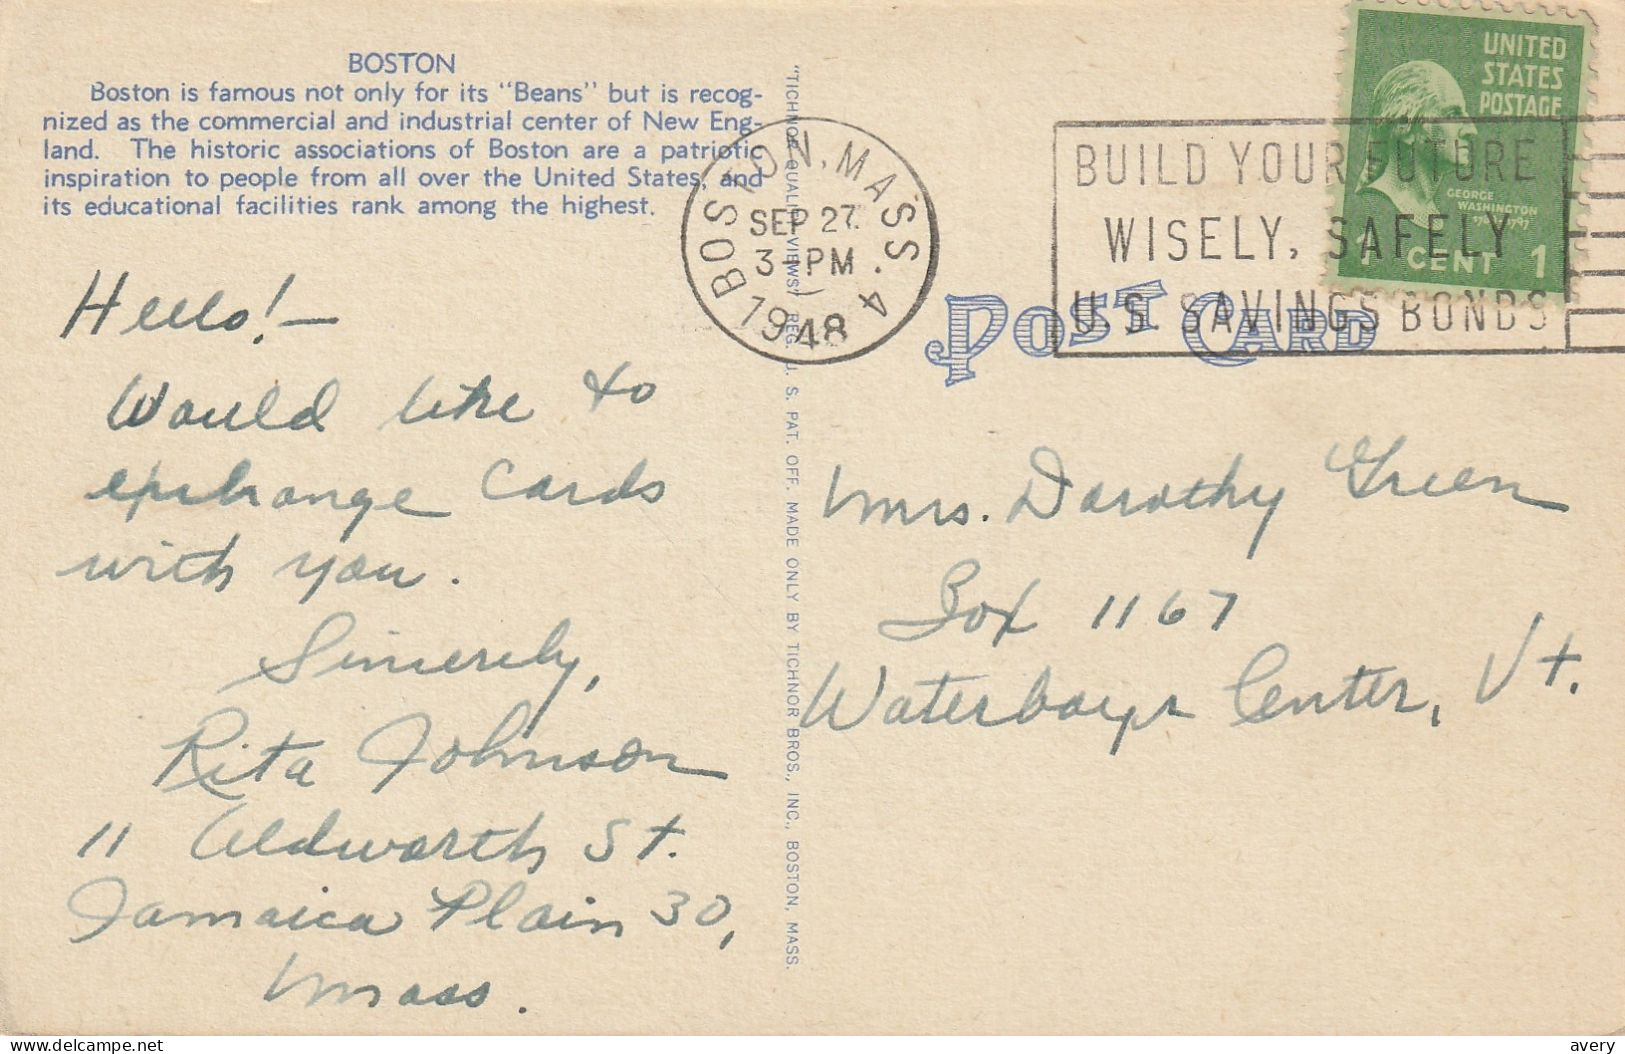 BOSTON
Boston is famous not only for its "Beans" but is recog-
nized as the commercial and industrial center of New Eng-
land. The historic associations of Boston are a patriotic
inspiration to people from all over the United States, and
its educational facilities rank among the highest.
Hello!—
Would like to
exchange cards
with you.
Sincerely,
Rita Johnson
11 Aldworth St.
Jamaica Plain 30,
Mass.
"TICHNOR QUALITY VIEWS," REG. U. S. PAT. OFF. MADE ONLY BY TICHNOR BROS., INC., BOSTON, MASS.
BOSTON, MASS. 4
SEP 27
3-PM
1948
BUILD YOUR FUTURE
WISELY, SAFELY
U S SAVINGS BONDS
UNITED
STATES
POSTAGE
GEORGE
WASHINGTON
1 CENT 1
POST CARD
Mrs. Dorothy Green
Box 1167
Waterbury Center, Vt.
delcampe.net
avery